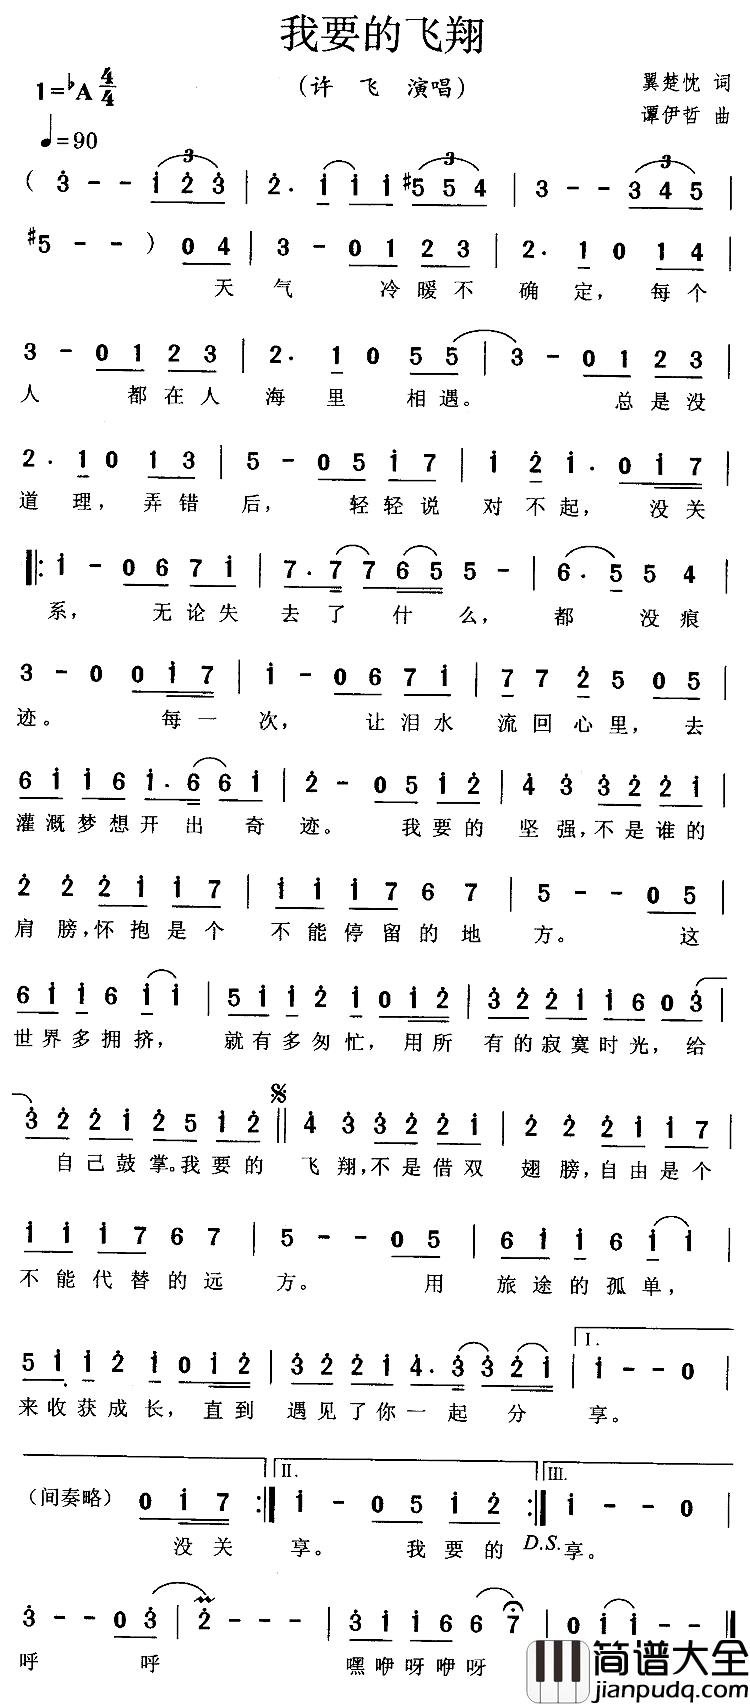 我要的飞翔
1=♭A 4/4
(许 飞 演唱)
翼楚忱 词
谭伊哲 曲
♩=90
( 3̇ - - 1̇ 2̇ 3̇ | 2̇ . 1̇ 1̇ 1̇ #5 5 4 | 3 - - 3 4 5 |
#5 - - ) 0 4 | 3 - 0 1 2 3 | 2 . 1 0 1 4 |
天 气 冷 暖 不 确 定, 每 个
3 - 0 1 2 3 | 2 . 1 0 5 5 | 3 - 0 1 2 3 |
人 都 在 人 海 里 相 遇。 总 是 没
2 . 1 0 1 3 | 5 - 0 5 1̇ 7 | 1̇ 2̇ 1̇ . 0 1̇ 7 |
道 理, 弄 错 后, 轻 轻 说 对 不 起, 没 关
‖: 1̇ - 0 6 7 1̇ | 7 . 7 7 6 5 5 - | 6 . 5 5 5 4 |
系, 无 论 失 去 了 什 么, 都 没 痕
3 - 0 0 1̇ 7 | 1̇ - 0 6 7 1̇ | 7 7 2̇ 5 0 5 |
迹。 每 一 次, 让 泪 水 流 回 心 里, 去
6 1̇ 1̇ 6 1̇ . 6 6 1̇ | 2̇ - 0 5 1̇ 2̇ | 4̇ 3̇ 3̇ 2̇ 2̇ 1̇ |
灌 溉 梦 想 开 出 奇 迹。 我 要 的 坚 强, 不 是 谁 的
2̇ 2̇ 2̇ 1̇ 1̇ 7 | 1̇ 1̇ 1̇ 7 6 7 | 5 - - 0 5 |
肩 膀, 怀 抱 是 个 不 能 停 留 的 地 方。 这
6 1̇ 1̇ 6 1̇ 1̇ | 5 1̇ 1̇ 2̇ 1̇ 0 1̇ 2̇ | 3̇ 2̇ 2̇ 1̇ 1̇ 6 0 3̇ |
世 界 多 拥 挤, 就 有 多 匆 忙, 用 所 有 的 寂 寞 时 光, 给
3̇ 2̇ 2̇ 1̇ 2̇ 5 1̇ 2̇ ‖ 4̇ 3̇ 3̇ 2̇ 2̇ 1̇ | 2̇ 2̇ 2̇ 1̇ 1̇ 7 |
自 己 鼓 掌。我 要 的 飞 翔, 不 是 借 双 翅 膀, 自 由 是 个
1̇ 1̇ 1̇ 7 6 7 | 5 - - 0 5 | 6 1̇ 1̇ 6 1̇ 1̇ |
不 能 代 替 的 远 方。 用 旅 途 的 孤 单,
5 1̇ 1̇ 2̇ 1̇ 0 1̇ 2̇ | 3̇ 2̇ 2̇ 1̇ 4̇ . 3̇ 3̇ 2̇ 1̇ | I. 1̇ - - 0
来 收 获 成 长, 直 到 遇 见 了 你 一 起 分 享。
(间奏略) 0 1̇ 7 :‖ II. 1̇ - 0 5 1̇ 2̇ :‖ III. 1̇ - - 0 |
没 关 享。 我 要 的 D.S. 享。
3̇ - - 0 3̇ | 2̇ - - - | 3̇ 1̇ 1̇ 1̇ 6 6 7 | 0 1̇ 1̇ - - ‖
呼 呼 嘿 咿 呀 咿 呀
简谱大全
jianpudq.com